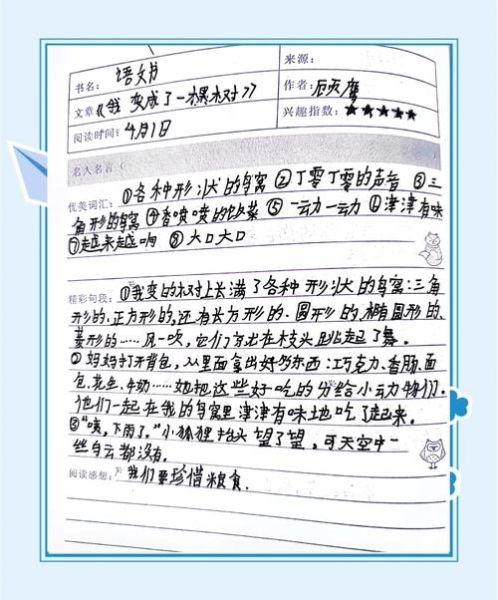 书名: 语文书
来源:
文章《我变成了一棵树》
作者: 顾鹰
阅读时间: 4月1日
兴趣指数: ★★★★★
名人名言
优美词汇: ①各种形状的鸟窝 ②丁零丁零的声音 ③三
角形的鸟窝 ④香喷喷的饭菜 ⑤一动一动 ⑥津津有味
⑦越来越响 ⑧大口大口
精彩句段: ①我变的树上长满了各种形状的鸟窝:三角
形的、正方形的,还有长方形的、圆形的、椭圆形的、
菱形的……风一吹,它们在枝头跳起了舞。
②妈妈打开背包,从里面拿出好多东西:巧克力、香肠、面
包、花生、牛奶……她把这些好吃的分给小动物们.
他们一起在我的鸟窝里津津有味地吃了起来。
③"咦,下雨了。"小狐狸抬头望了望,可天空中一
丝白云都没有.
阅读感想: 我们要珍惜粮食.